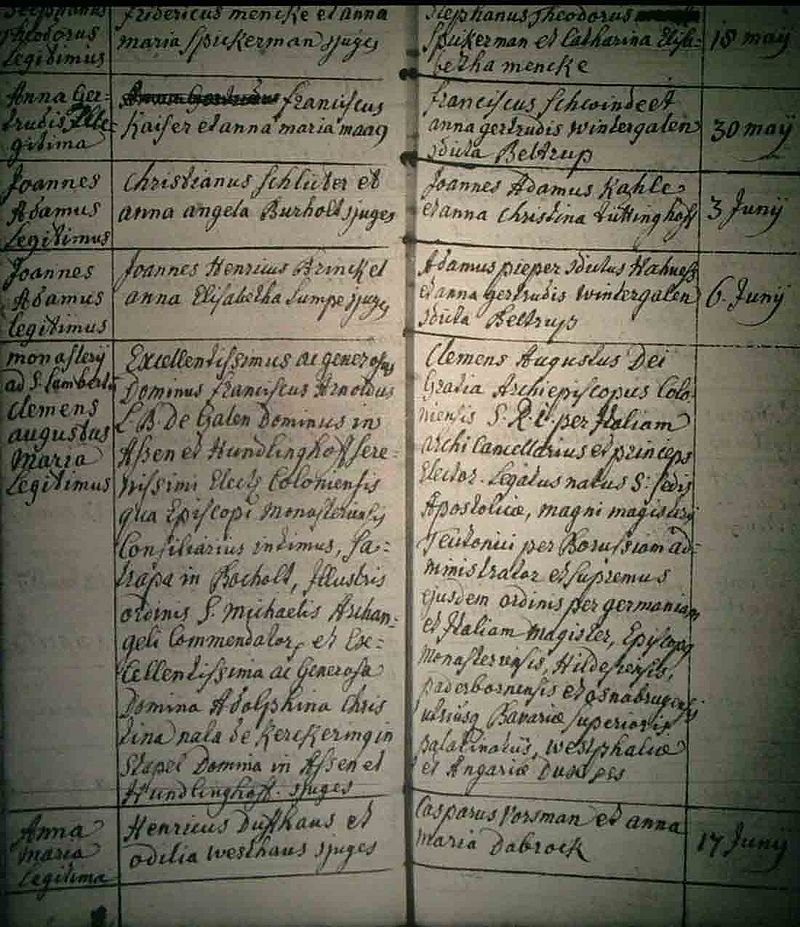 Theodorus
Legitimus
Fridericus mencke et anna
maria Spickerman sjuges
Stephanus Theodorus
Spickerman et Catharina Elisa-
betha mencke
18 maÿ
Anna Ger-
trudis Ille-
gitima
Franciscus
Kaiser et anna maria maag
Franciscus Schwinde et
anna gertrudis Wintergalen
dicta Beltrup
30 maÿ
Joannes
Adamus
Legitimus
Christianus Schlüter et
anna angela Burholt sjuges
Joannes Adamus Kahle
et anna Christina Tüttinghoff
3 Junÿ
Joannes
Adamus
legitimus
Joannes Henricus Brinck et
anna Elisabetha Sumpe sjuges
Adamus pieper dictus
et anna gertrudis Wintergalen
dicta Beltrup
6. Junÿ
monasterÿ
ad S. Lamberti
Clemens
augustus
Maria
Legitimus
Excellentissimus ac generosus
Dominus Franciscus Arnoldus
L B De Galen Dominus in
Assen et Hundlinghoff sere-
nissimi Elect Coloniensis
qua Episcopi monasteriensis
Consiliarius intimus, Sa-
trapa in Bocholt, Illustris
ordinis S. Michaelis Archan-
geli Commendator, et Exc-
cellentissima ac Generosa
Domina Adolphina Chris
tina nata de Kerckering in
Stapel Domina in Assen et
Hundlinghoff. sjuges
Clemens Augustus Dei
Gratia Archiepiscopus Colo-
niensis S. R. I. per Italiam
archi Cancellarius et princeps
Elector. Legatus natus S. sedis
Apostolicæ, magni magisterÿ
Teutonici per Borussiam ad-
ministrator et supremus
ejusdem ordinis per germaniam
et Italiam magister, Episcopq
monasteriensis, Hildesiensis,
paderbornensis et osnabrugensis
utriusq Bavariæ superioris
palatinatus, westphaliæ
et Angariæ Dux
Anna
maria
Legitima
Henricus Duffhaus et
odilia westhaus sjuges
Casparus Vorsman et anna
maria Dabrock
17 Junÿ